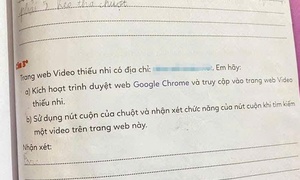 phải ý kéo thả chuột
Câu 3*
Trang web Video thiếu nhi có địa chỉ: . Em hãy:
a) Kích hoạt trình duyệt web Google Chrome và truy cập vào trang web Video
thiếu nhi.
b) Sử dụng nút cuộn của chuột và nhận xét chức năng của nút cuộn khi tìm kiếm
một video trên trang web này.
Nhận xét: